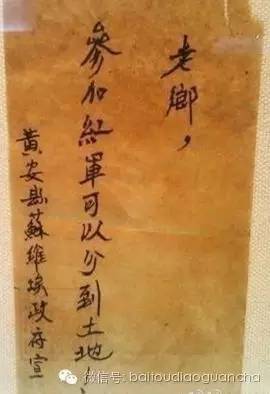 老鄉，
參加紅軍可以分到土地
黃安縣蘇維埃政府宣
微信号: baitoudiaoguancha